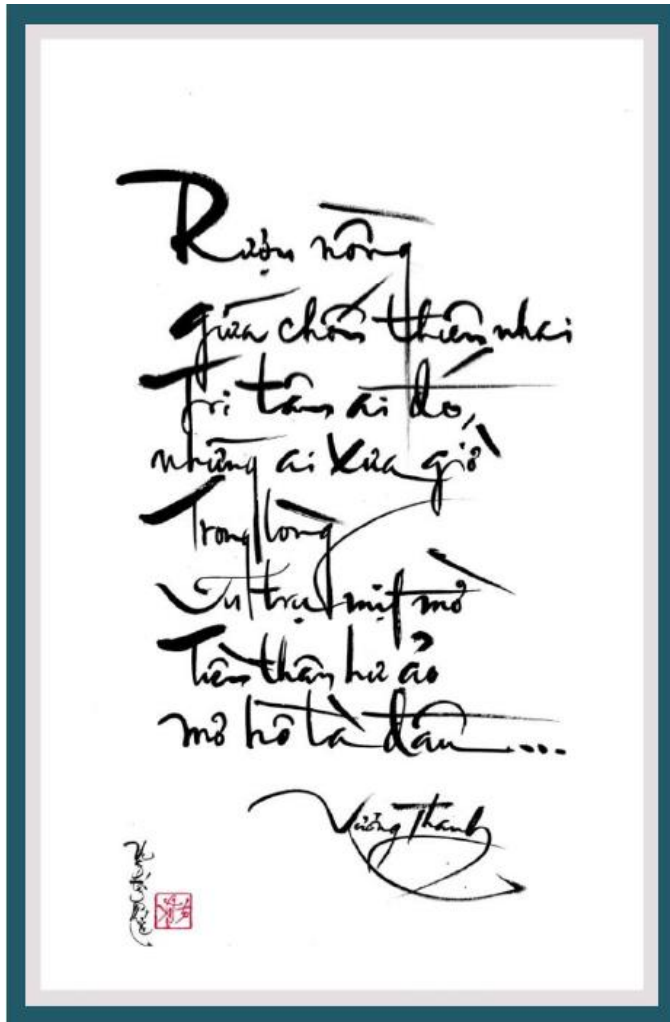 Rượu nồng
giữa chốn thiên nhai
Tri tâm ai đó,
những ai xưa giờ
Trong lòng
vũ trụ mịt mờ
Tiền thân hư ảo
mơ hồ là đâu....
Vương Thanh